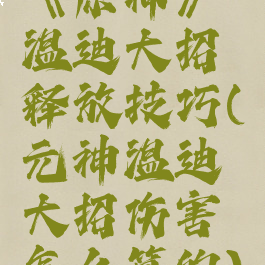 《原神》
温迪大招
释放技巧(
元神温迪
大招伤害
怎么算的)